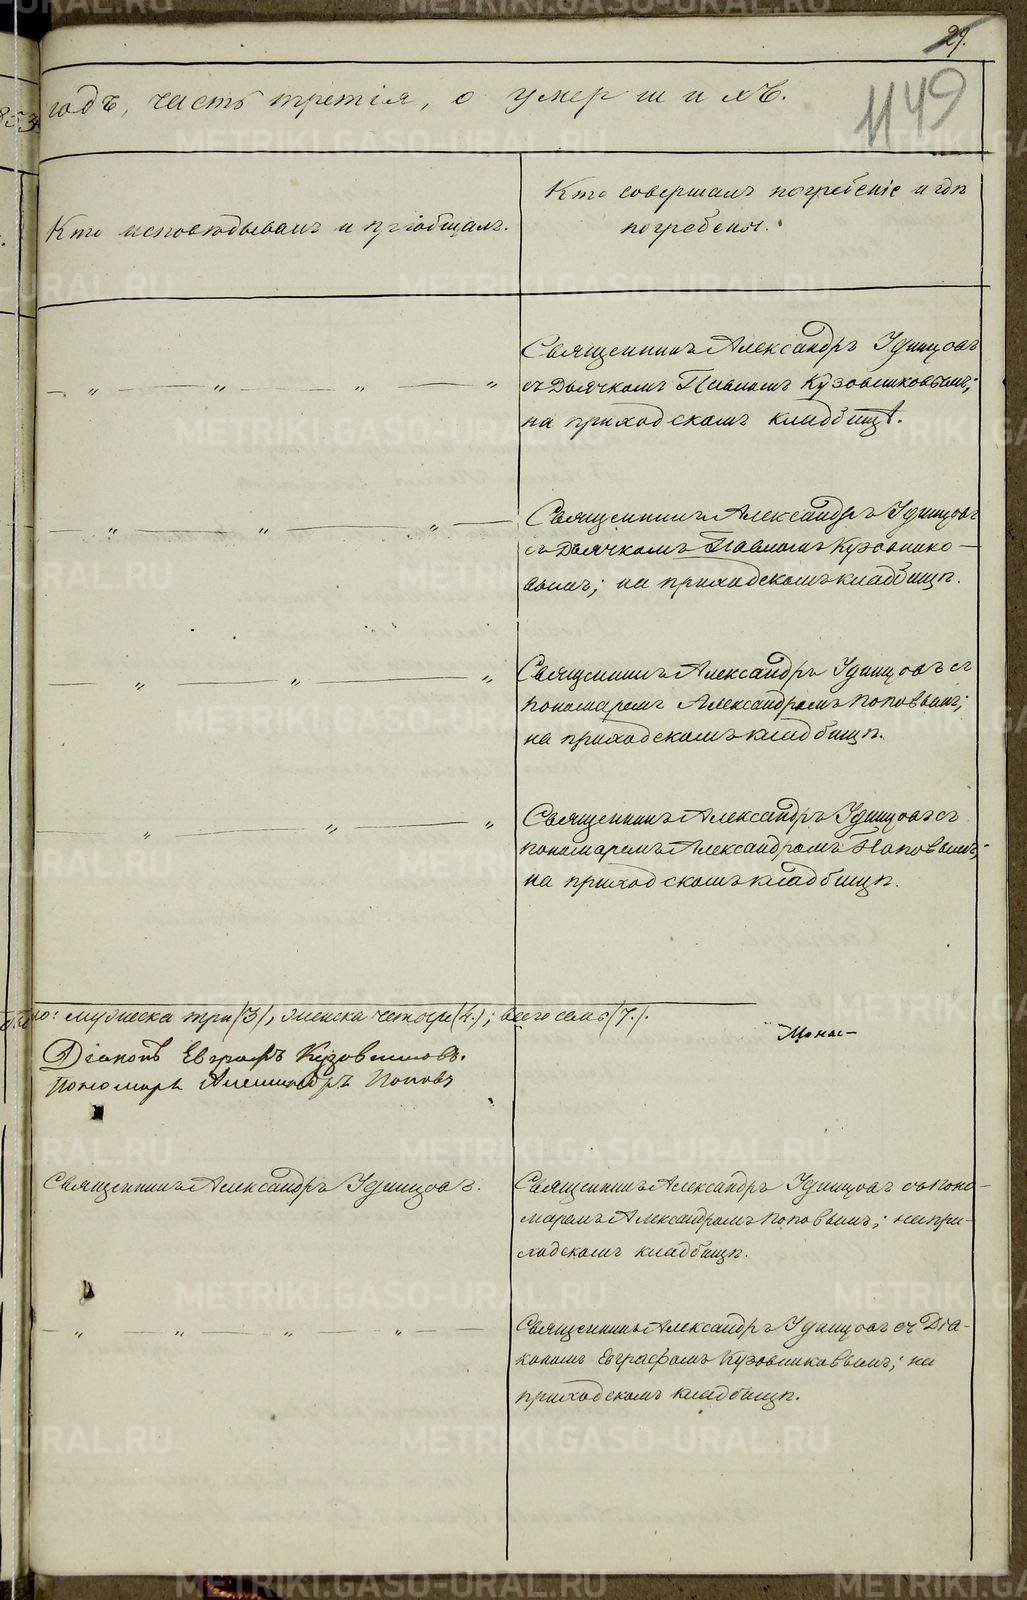 29.
1149
853 годъ, часть третія, о умершихъ.
Кто исповѣдывалъ и пріобщалъ.
Кто совершалъ погребеніе и гдѣ
погребены.
Священникъ Александръ Удинцовъ
съ Дьячкомъ Павломъ Кузовниковымъ;
на приходскомъ кладбищѣ.
— „ — „ — „ — „
Священникъ Александръ Удинцовъ
съ Дьячкомъ Павломъ Кузовнико-
вымъ; на приходскомъ кладбищѣ.
— „ — „ — „ —
Священникъ Александръ Удинцовъ съ
пономаремъ Александромъ Поповымъ;
на приходскомъ кладбищѣ.
— „ — „ — „
Священникъ Александръ Удинцовъ съ
пономаремъ Александромъ Поповымъ;
на приходскомъ кладбищѣ.
— „ — „ — „
мужеска три (3), женска четыре (4.); всего семь (7.).
Діаконъ Евграфъ Кузовниковъ.
Пономарь Александръ Поповъ
Монас-
Священникъ Александръ Удинцовъ.
Священникъ Александръ Удинцовъ съ поно-
маремъ Александромъ Поповымъ; на при-
ходскомъ кладбищѣ.
— „ — „ — „ — „ —
Священникъ Александръ Удинцовъ съ Діа-
кономъ Евграфомъ Кузовниковымъ; на
приходскомъ кладбищѣ.
METRIKI.GASO-URAL.RU